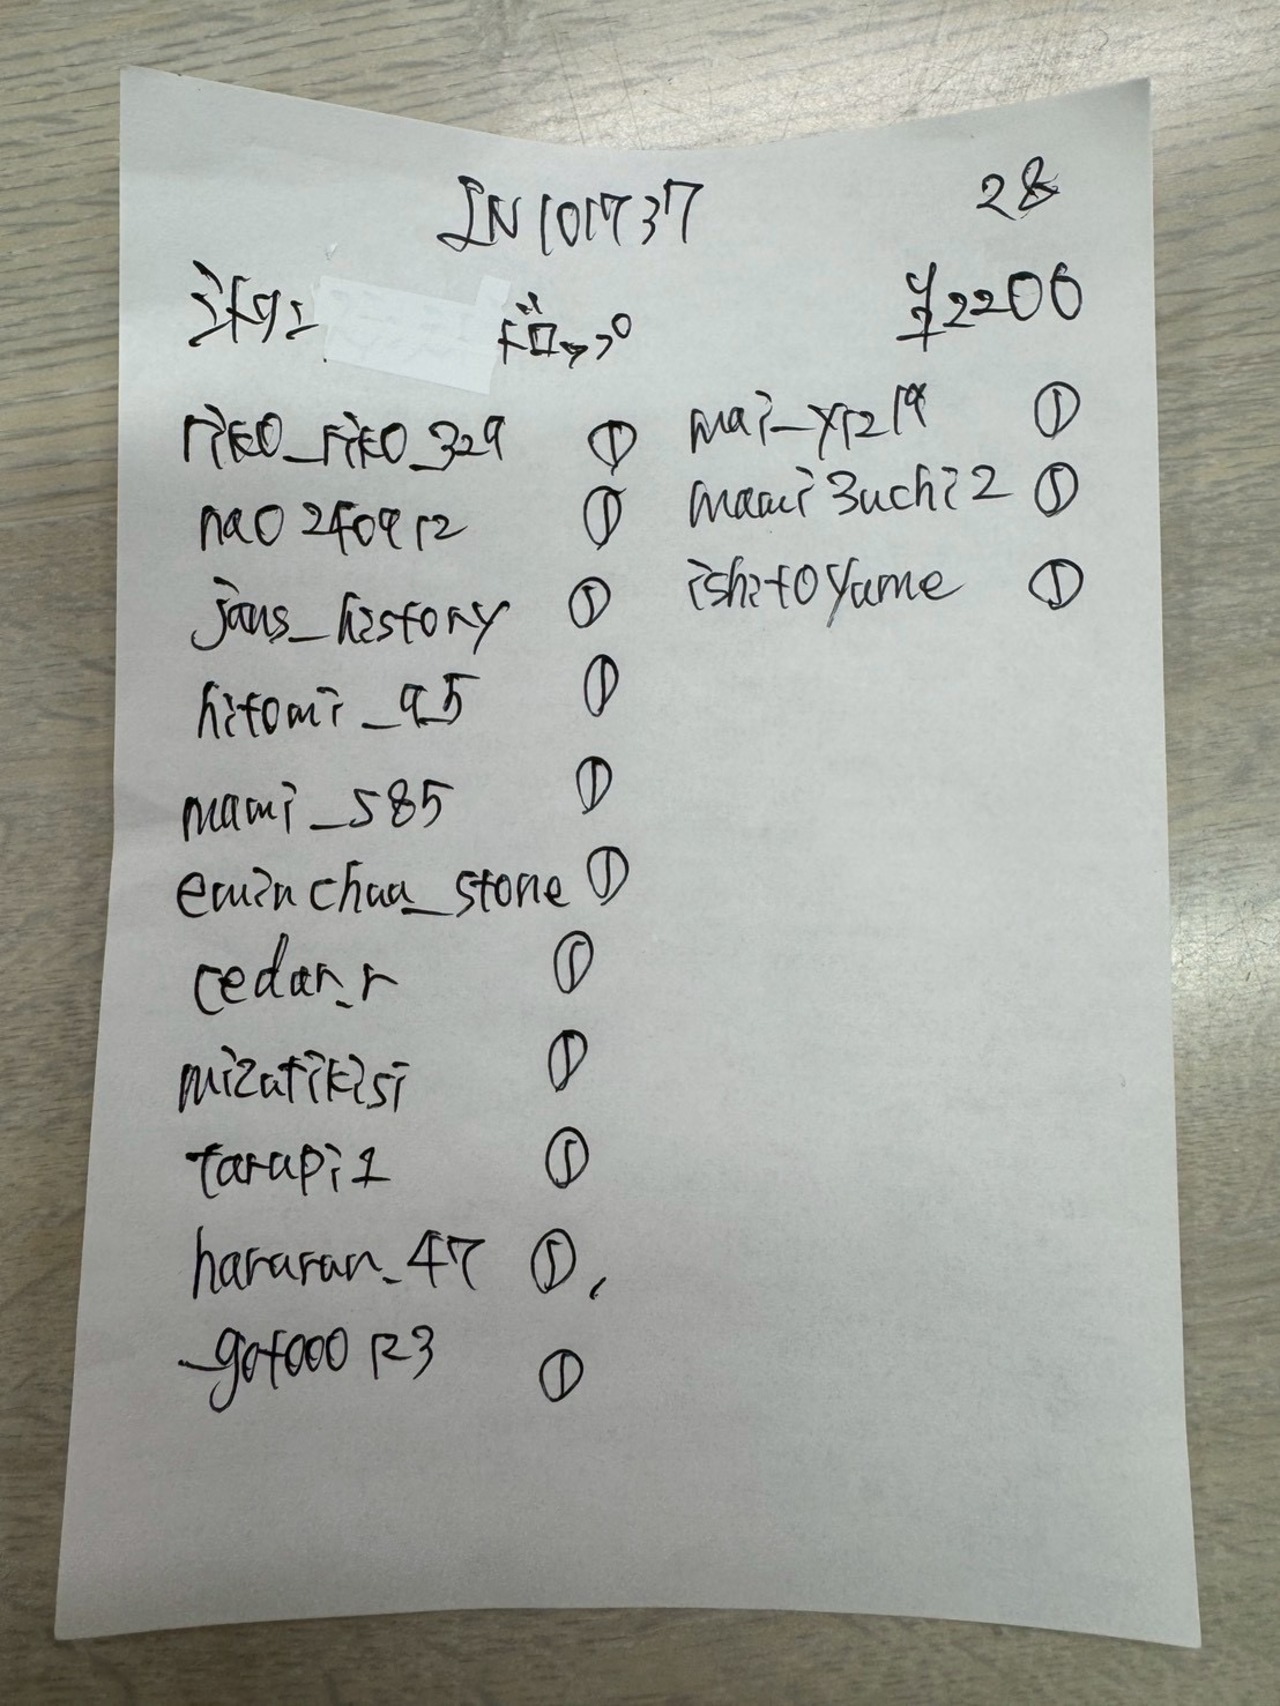 IN101737
28
ドロップ
¥2200
riko_riko_329 ①
nao240912 ①
jans_history ①
hitomi_95 ①
mami_585 ①
eminchaa_stone ①
cedar_r ①
mizutikisi ①
tarapi1 ①
hararan_47 ①
_goto00123 ①
mai_y1219 ①
mami3uchi2 ①
ishitoyume ①